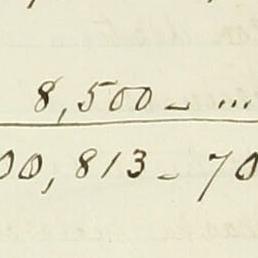 8,500 - ...
00,813 - 70